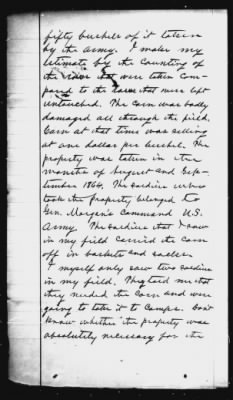 fifty bushels of it taken
by the army. I make my
estimate by the counting of
the rows that were taken com-
pared to the rows that were left
untouched. The corn was badly
damaged all through the field.
Corn at that time was selling
at one dollar per bushel. The
property was taken in the
months of August and Sep-
tember 1864. The soldiers who
took the property belonged to
Gen. Morgan's Command U.S.
Army. The soldiers that I saw
in my field carried the corn
off in baskets and sacks.
I myself only saw two soldiers
in my field. They told me that
they needed the corn and were
going to take it to Camp. Don't
know whether the property was
absolutely necessary for the